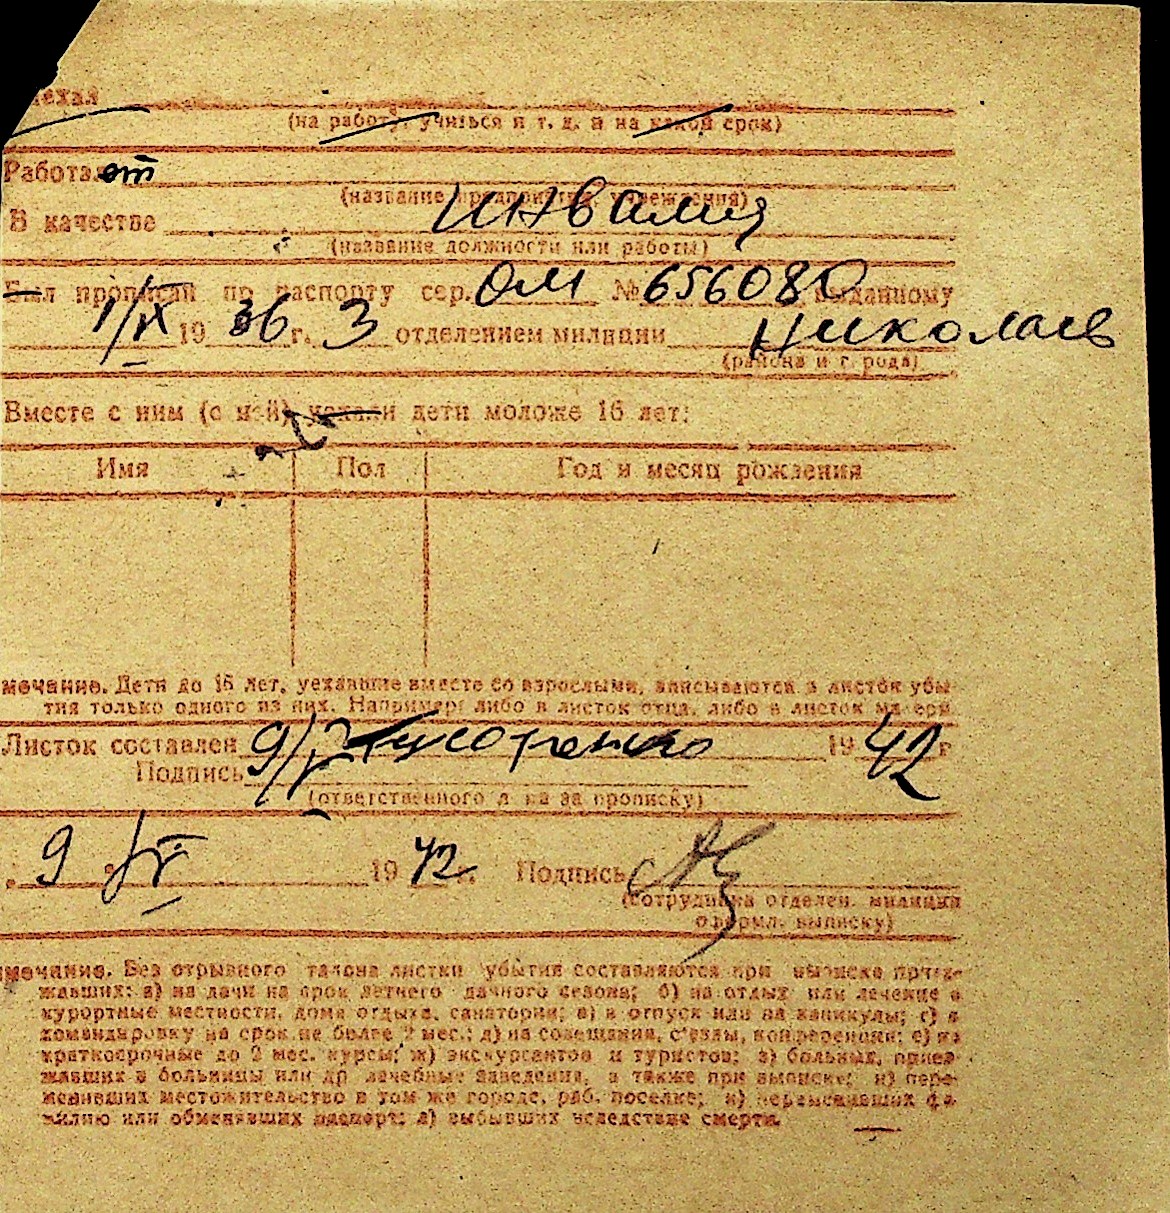 ехал
(на работу, учиться и т. д. и на какой срок)
Работает
(название предприятия, учреждения)
В качестве инвалид
(название должности или работы)
Был прописан по паспорту сер. ОМ № 656080 выданному
1/IX 1936 г. 3 отделением милиции Николаев
(района и г. рода)
Вместе с ним (с ней) уехали дети моложе 16 лет:
Имя Пол Год и месяц рождения
мечание. Дети до 16 лет, уехавшие вместе со взрослыми, вписываются в листок убы-
тия только одного из них. Например: либо в листок отца, либо в листок матери
Листок составлен 9/V 1942 г
Подпись
(ответственного л ца за прописку)
9 /V 1942 г. Подпись
(сотрудника отделен. милиции
оформл. выписку)
мечание. Без отрывного талона листки убытия составляются при выписке приез-
жавших: а) на дачи на срок летнего дачного сезона; б) на отдых или лечение в
курортные местности, дома отдыха, санатории; в) в отпуск или на каникулы; г) в
командировку на срок не более 2 мес.; д) на совещания, с'езды, конференции; е) на
краткосрочные до 2 мес. курсы; ж) экскурсантов и туристов; з) больных, приез-
жавших в больницы или др лечебные заведения, а также при выписке; и) пере-
менивших местожительство в том же городе, раб. поселке; к) переменивших фа-
милию или обменявших паспорт; л) выбывших вследствие смерти.